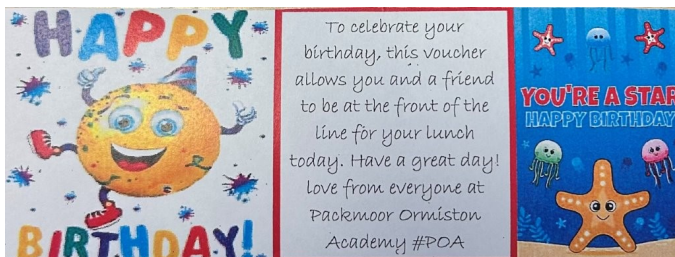 HAPPY
BIRTHDAY!
To celebrate your
birthday, this voucher
allows you and a friend
to be at the front of the
line for your lunch
today. Have a great day!
love from everyone at
Packmoor Ormiston
Academy #POA
YOU'RE A STAR
HAPPY BIRTHDAY